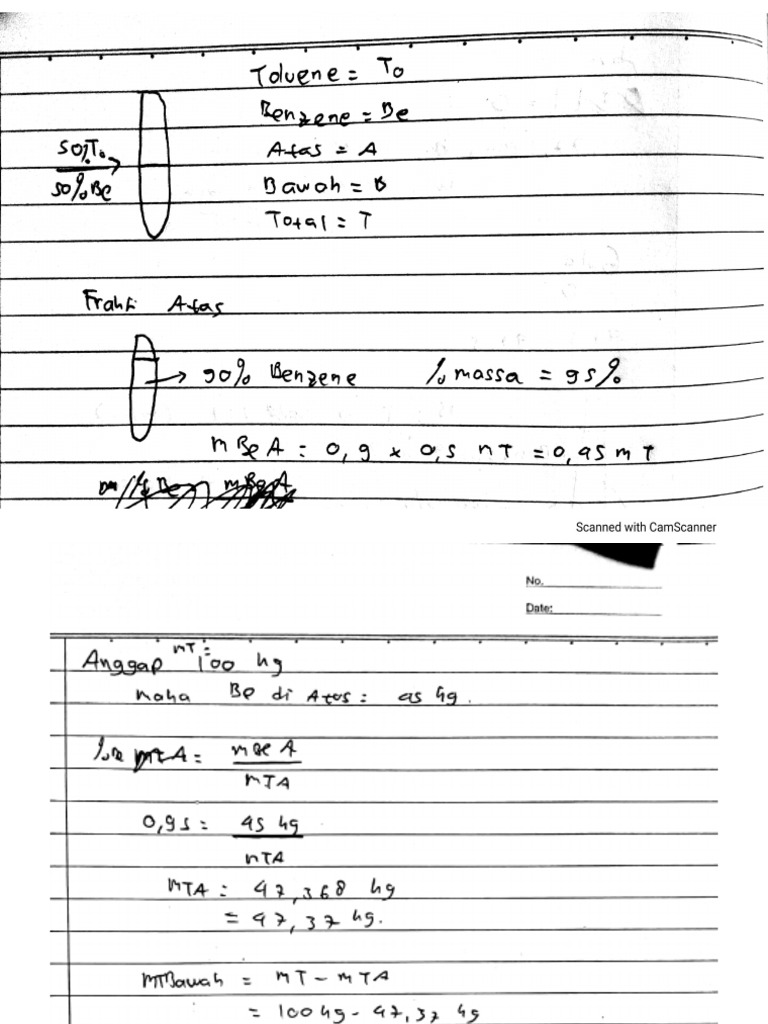 Toluene = To
Benzene = Be
50% To
50% Be
Atas = A
Bawah = B
Total = T
Fraksi Atas
90% Benzene % massa = 95%
m Be A = 0,9 x 0,5 mT = 0,45 mT
Scanned with CamScanner
No.
Date:
Anggap mT = 100 kg
maka Be di Atas = 45 kg.
A = m Be A
mTA
0,95 = 45 kg
mTA
mTA = 47,368 kg
= 47,37 kg.
mTBawah = mT - mTA
= 100 kg - 47,37 kg